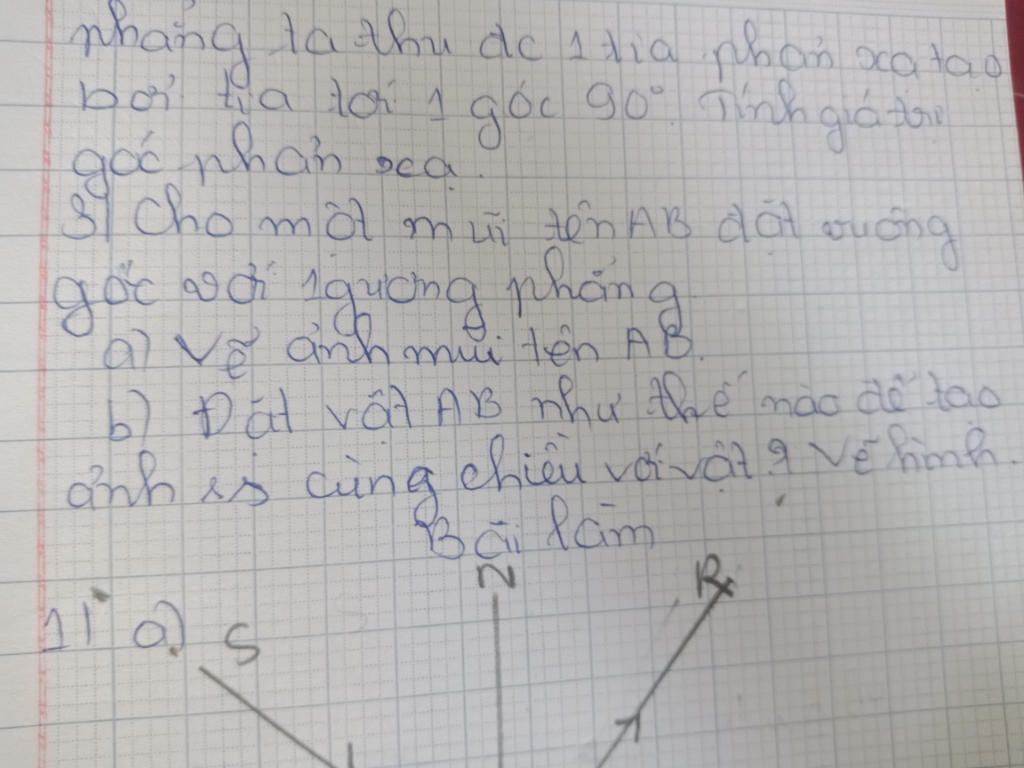 phẳng ta thu dc 1 tia phản xạ tạo
bởi tia tới 1 góc 90°. Tính giá trị
góc phản xạ.
3) Cho một mũi tên AB đặt vuông
góc với 1 gương phẳng
a) Vẽ ảnh mũi tên AB.
b) Đặt vật AB như thế nào để tạo
ảnh cùng chiều với vật? Vẽ hình.
Bài làm
N
R
1) a)
S